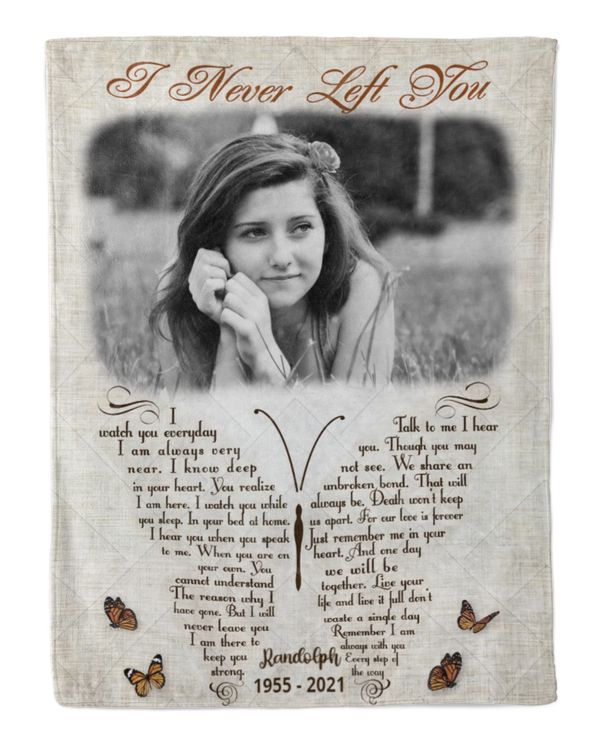 I Never Left You
I
watch you everyday
I am always very
near. I know deep
in your heart. You realize
I am here. I watch you while
you sleep. In your bed at home.
I hear you when you speak
to me. When you are on
your own. You
cannot understand
The reason why I
have gone. But I will
never leave you
I am there to
keep you
strong.
Talk to me I hear
you. Though you may
not see. We share an
unbroken bond. That will
always be. Death won't keep
us apart. For our love is forever
Just remember me in your
heart. And one day
we will be
together. Live your
life and live it full don't
waste a single day
Remember I am
always with you
Every step of
the way
Randolph
1955 - 2021